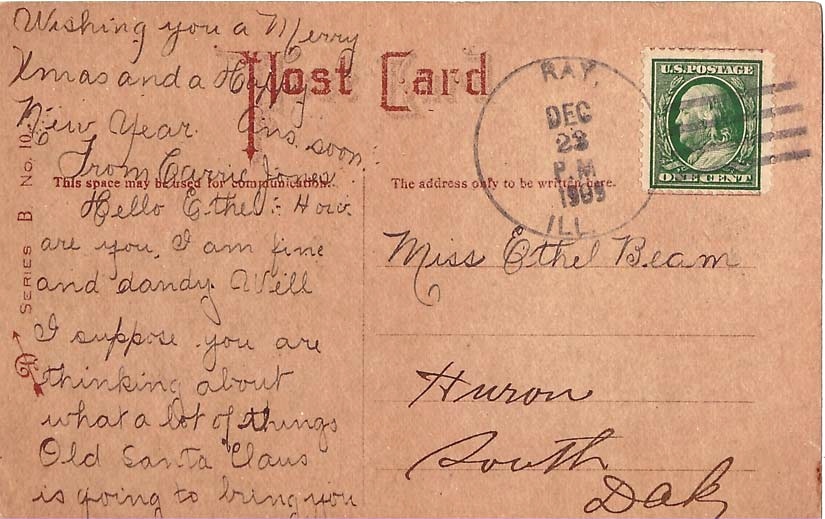 Wishing you a Merry
Xmas and a Happy
New Year. Ans. soon.
From Carrie Jones
Hello Ethel: How
are you, I am fine
and dandy. Well
I suppose you are
thinking about
what a lot of things
Old Santa Claus
is going to bring you
Post Card
This space may be used for communication.
The address only to be written here.
SERIES B No. 10
RAY,
DEC
23
P.M
1909
ILL.
U.S. POSTAGE
ONE CENT
Miss Ethel Beam
Huron
South
Dak